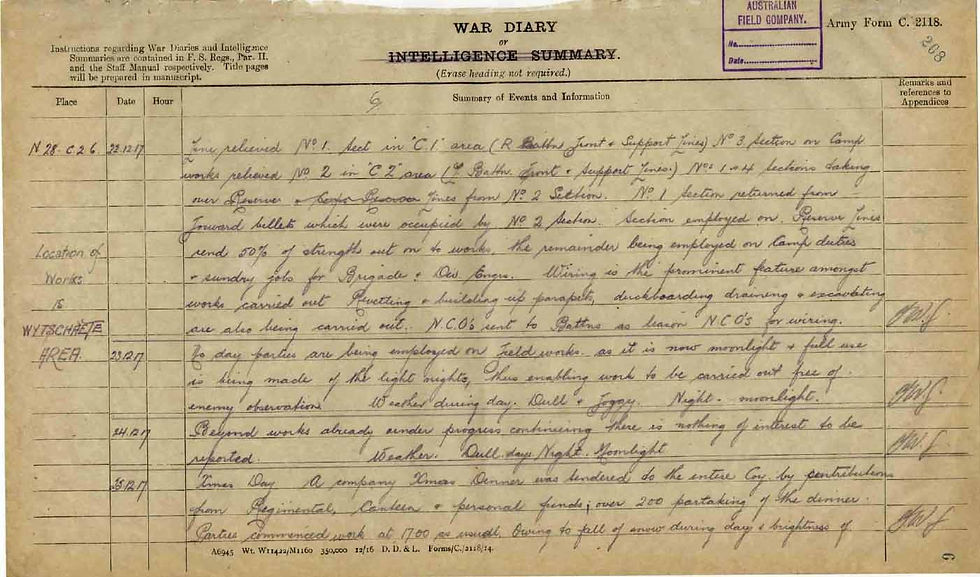 WAR DIARY
or
INTELLIGENCE SUMMARY.
(Erase heading not required.)
Instructions regarding War Diaries and Intelligence
Summaries are contained in F. S. Regs., Par. II.
and the Staff Manual respectively. Title pages
will be prepared in manuscript.
AUSTRALIAN
FIELD COMPANY.
No.
Date
Army Form C. 2118.
208
Place
Date
Hour
Summary of Events and Information
Remarks and
references to
Appendices
N 28. C 2 6. 22.12.17 relieved No 1. Sect in "C.1" area (R Battn Front & Support Lines) No 3 Section on Camp
works relieved No 2 in "C2" area (L Battn. Front & Support Lines.) Nos 1 & 4 sections taking
over Reserve & Corps Reserve Lines from No 2 Section. No 1 Section returned from
forward billets which were occupied by No 2 Section. Section employed on Reserve Lines
send 50% of strength out on to works, the remainder being employed on Camp duties
& sundry jobs for Brigade & Div Engrs. Wiring is the prominent feature amongst
works carried out Revetting & building up parapet, duckboarding draining & excavating
are also being carried out. N.C.O's sent to Battns as liason N.C.O's for wiring.
Location of
Works
is
WYTSCHAETE
AREA.
23.12.17 No day parties are being employed on Field works as it is now moonlight & full use
is being made of the light nights, thus enabling work to be carried out free of
enemy observation Weather during day. Dull & foggy. Night - moonlight.
24.12.17 Beyond works already under progress continuing there is nothing of interest to be
reported. Weather. Dull days Night. Moonlight
25.12.17 Xmas Day A company Xmas Dinner was tendered to the entire Coy. by contributions
from Regimental, Canteen & personal funds; over 200 partaking of the dinner.
Parties commenced work at 1700 as usual. Owing to fall of snow during day & brightness of
A6945 Wt. W11422/M1160 350,000 12/16 D. D. & L. Forms/C./2118/14.